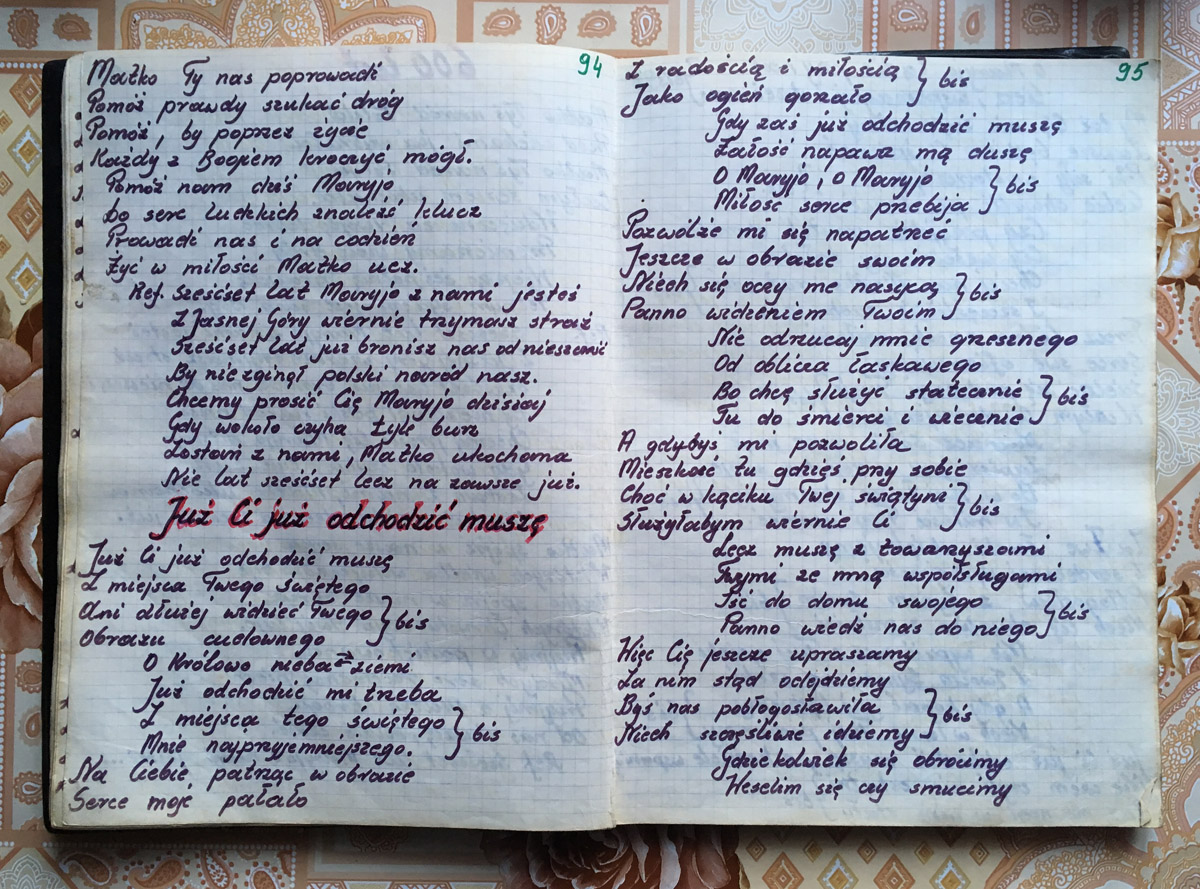 94
Matko Ty nas poprowadź
Pomóż prawdy szukać dróg
Pomóż, by poprzez życie
Każdy z Bogiem kroczyć mógł.
Pomóż nam dziś Maryjo
Do serc ludzkich znaleźć klucz
Prowadź nas i na codzień
Żyć w miłości Matko ucz.
Ref. Sześćset lat Maryjo z nami jesteś
Z Jasnej Góry wiernie trzymasz straż
Sześćset lat już bronisz nas od nieszczęść
By nie zginął polski naród nasz.
Chcemy prosić Cię Maryjo dzisiaj
Gdy wokoło czyha tyle burz
Zostań z nami, Matko ukochana
Nie lat sześćset lecz na zawsze już.
Już Ci już odchodzić muszę
Już Ci już odchodzić muszę
Z miejsca Twego świętego
Ani dłużej widzieć Twego } bis
Obrazu cudownego
O Królowo nieba ziemi
Już odchodzić mi trzeba
Z miejsca tego świętego } bis
Mnie najprzyjemniejszego.
Na Ciebie patrząc w obrazie
Serce moje pałało
95
Z radością i miłością } bis
Jako ogień gorzało
Gdy zaś już odchodzić muszę
Żałość napawa mą duszę
O Maryjo, o Maryjo } bis
Miłość serce przebija
Pozwólże mi się napatrzeć
Jeszcze w obrazie swoim
Niech się oczy me nasycą } bis
Panno widzeniem Twoim
Nie odrzucaj mnie grzesznego
Od oblicza łaskawego
Bo chcę służyć statecznie } bis
Tu do śmierci i wiecznie
A gdybyś mi pozwoliła
Mieszkać tu gdzieś przy sobie
Choć w kąciku Twej świątyni } bis
Służyłabym wiernie Ci
Lecz muszę z towarzyszami
Twymi ze mną współsługami
Iść do domu swojego } bis
Panno wiedź nas do niego
Więc Cię jeszcze upraszamy
Za nim stąd odejdziemy
Byś nas pobłogosławiła } bis
Niech szczęśliwie idziemy
Gdziekolwiek się obrócimy
Weselim się czy smucimy